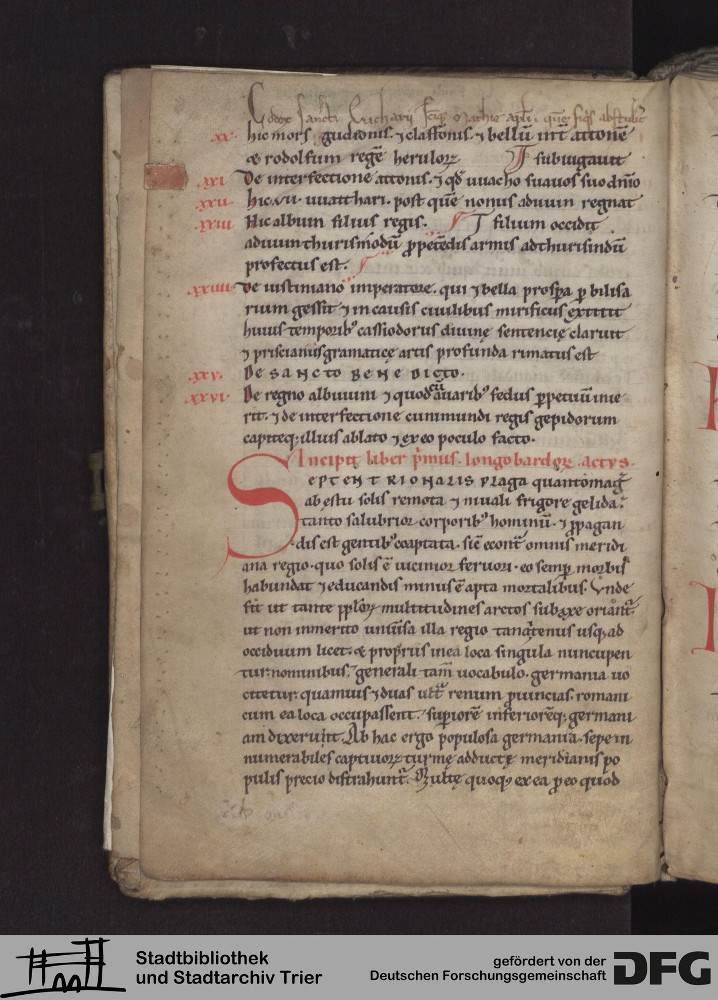 Codex sancti Eucharii
xx. hic mors gudeonis. ⁊ claffonis. ⁊ bellū int̄ tatonē
& rodolfum regē heruloꝝ subiugauit
xxi. De interfectione attonis. ⁊ qđ uuacho suauos suo dn̄io
xxii. hic .vii. uualthari. post quē nonus aduuin regnat
xxiii. Hic albuin filius regis. filium occidit
aduuin thurismodū ꝓpetēdis armis ad thurisindū
profectus est.
xxiiii. De iustiniano imperatore. qui ⁊ bella prospa ꝑ bilisa
rium gessit ⁊ in causis ciuilibus mirificus extitit
huius temporibꝰ cassiodorus diuinę sentencię claruit
⁊ priscianus gramaticę artis profunda rimatus est
xxv. De SANCTO BENEDICTO.
xxvi. De regno albuuini ⁊ quod cū auaribꝰ fedus ꝑpetuū inie
rit. ⁊ de interfectione cunimundi regis gepidorum
capiteq; illius ablato ⁊ ex eo poculo facto.
Incipit liber p̄mus. longobardoꝝ actus.
SEPTENTRIONALIS plaga quanto mag̾
ab estu solis remota ⁊ niuali frigore gelida.
tanto salubrior corporibꝰ hominū. ⁊ ꝓpagan
dis est gentibꝰ coaptata. sic̄ econt̄ omnis meridi
ana regio. quo solis ē uicinior feruori. eo semꝑ morbis
habundat ⁊ educandis minus ē apta mortalibus. Vnde
fit ut tante pploꝝ multitudines arctos sub axe oriant̾.
ut non inmerito uniuersa illa regio tanaitenus usq; ad
occiduum licet. & proprius in ea loca singula nuncupen
tur nominibus, generali tam̄ uocabulo. germania uo
citetur. quamuis ⁊ duas ult̄ renum ꝓuincias. romani
cum ea loca occupassent. superiorē inferiorēq; germani
am dixerunt. Ab hac ergo populosa germania. sepe in
numerabiles captiuoꝝ turmę adductę meridianis po
pulis precio distrahunt̾. Multę quoq; ex ea ꝓ eo quod
Stadtbibliothek
und Stadtarchiv Trier
gefördert von der
Deutschen Forschungsgemeinschaft
DFG